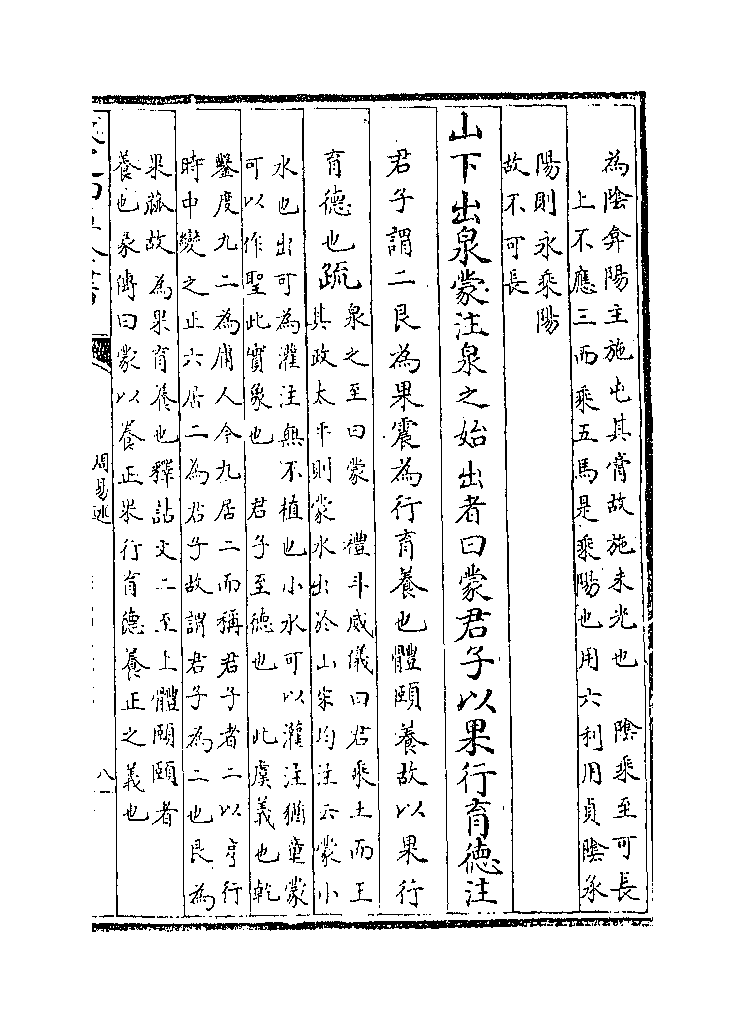 為陰弇陽主施屯其膏故施未光也　陰乘至可長
上不應三而乘五馬是乘陽也用六利用貞陰承
陽則永乘陽
故不可長
山下出泉蒙注泉之始出者曰蒙君子以果行育德注
君子謂二艮為果震為行育養也體頤養故以果行
育德也疏
泉之至曰蒙　禮斗威儀曰君乘土而王
其政太平則蒙水出於山宋均注云蒙小
水也出可為灌注無不植也小水可以灌注猶童蒙
可以作聖此實象也　君子至德也　此虞義也乾
鑿度九二為庸人今九居二而稱君子者二以亨行
時中變之正六居二為君子故謂君子為二也艮為
果蓏故為果育養也釋詁文二至上體頤頤者
養也彖傳曰蒙以養正果行育德養正之義也
周易述